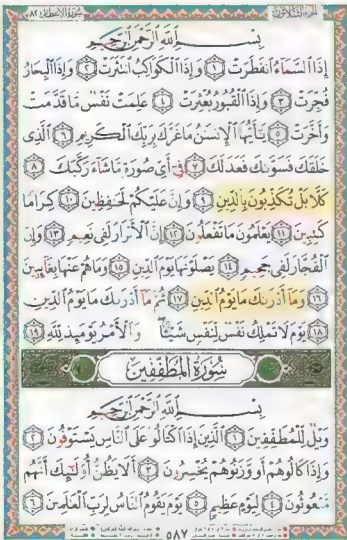 الجزء الثلاثون سورة الانفطار ٨٢
بِسْمِ اللَّهِ الرَّحْمَٰنِ الرَّحِيمِ
إِذَا السَّمَاءُ انفَطَرَتْ ١ وَإِذَا الْكَوَاكِبُ انتَثَرَتْ ٢ وَإِذَا الْبِحَارُ
فُجِّرَتْ ٣ وَإِذَا الْقُبُورُ بُعْثِرَتْ ٤ عَلِمَتْ نَفْسٌ مَّا قَدَّمَتْ
وَأَخَّرَتْ ٥ يَٰأَيُّهَا الْإِنسَٰنُ مَا غَرَّكَ بِرَبِّكَ الْكَرِيمِ ٦ الَّذِي
خَلَقَكَ فَسَوَّىٰكَ فَعَدَلَكَ ٧ فِي أَيِّ صُورَةٍ مَّا شَاءَ رَكَّبَكَ ٨
كَلَّا بَلْ تُكَذِّبُونَ بِالدِّينِ ٩ وَإِنَّ عَلَيْكُمْ لَحَٰفِظِينَ ١٠ كِرَامًا
كَٰتِبِينَ ١١ يَعْلَمُونَ مَا تَفْعَلُونَ ١٢ إِنَّ الْأَبْرَارَ لَفِي نَعِيمٍ ١٣ وَإِنَّ
الْفُجَّارَ لَفِي جَحِيمٍ ١٤ يَصْلَوْنَهَا يَوْمَ الدِّينِ ١٥ وَمَا هُمْ عَنْهَا بِغَائِبِينَ
١٦ وَمَا أَدْرَىٰكَ مَا يَوْمُ الدِّينِ ١٧ ثُمَّ مَا أَدْرَىٰكَ مَا يَوْمُ الدِّينِ
١٨ يَوْمَ لَا تَمْلِكُ نَفْسٌ لِّنَفْسٍ شَيْئًا وَالْأَمْرُ يَوْمَئِذٍ لِّلَّهِ ١٩
سُورَةُ الْمُطَفِّفِينَ
بِسْمِ اللَّهِ الرَّحْمَٰنِ الرَّحِيمِ
وَيْلٌ لِّلْمُطَفِّفِينَ ١ الَّذِينَ إِذَا اكْتَالُوا عَلَى النَّاسِ يَسْتَوْفُونَ ٢
وَإِذَا كَالُوهُمْ أَو وَّزَنُوهُمْ يُخْسِرُونَ ٣ أَلَا يَظُنُّ أُولَٰئِكَ أَنَّهُم
مَّبْعُوثُونَ ٤ لِيَوْمٍ عَظِيمٍ ٥ يَوْمَ يَقُومُ النَّاسُ لِرَبِّ الْعَٰلَمِينَ ٦
٥٨٧